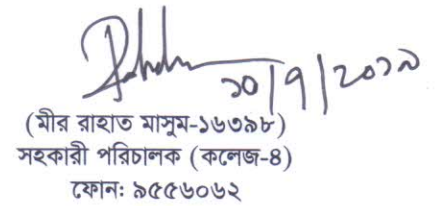 ১০/৭/২০১৯
(মীর রাহাত মাসুম-১৬৩৯৮)
সহকারী পরিচালক (কলেজ-৪)
ফোনঃ ৯৫৫৬০৬২